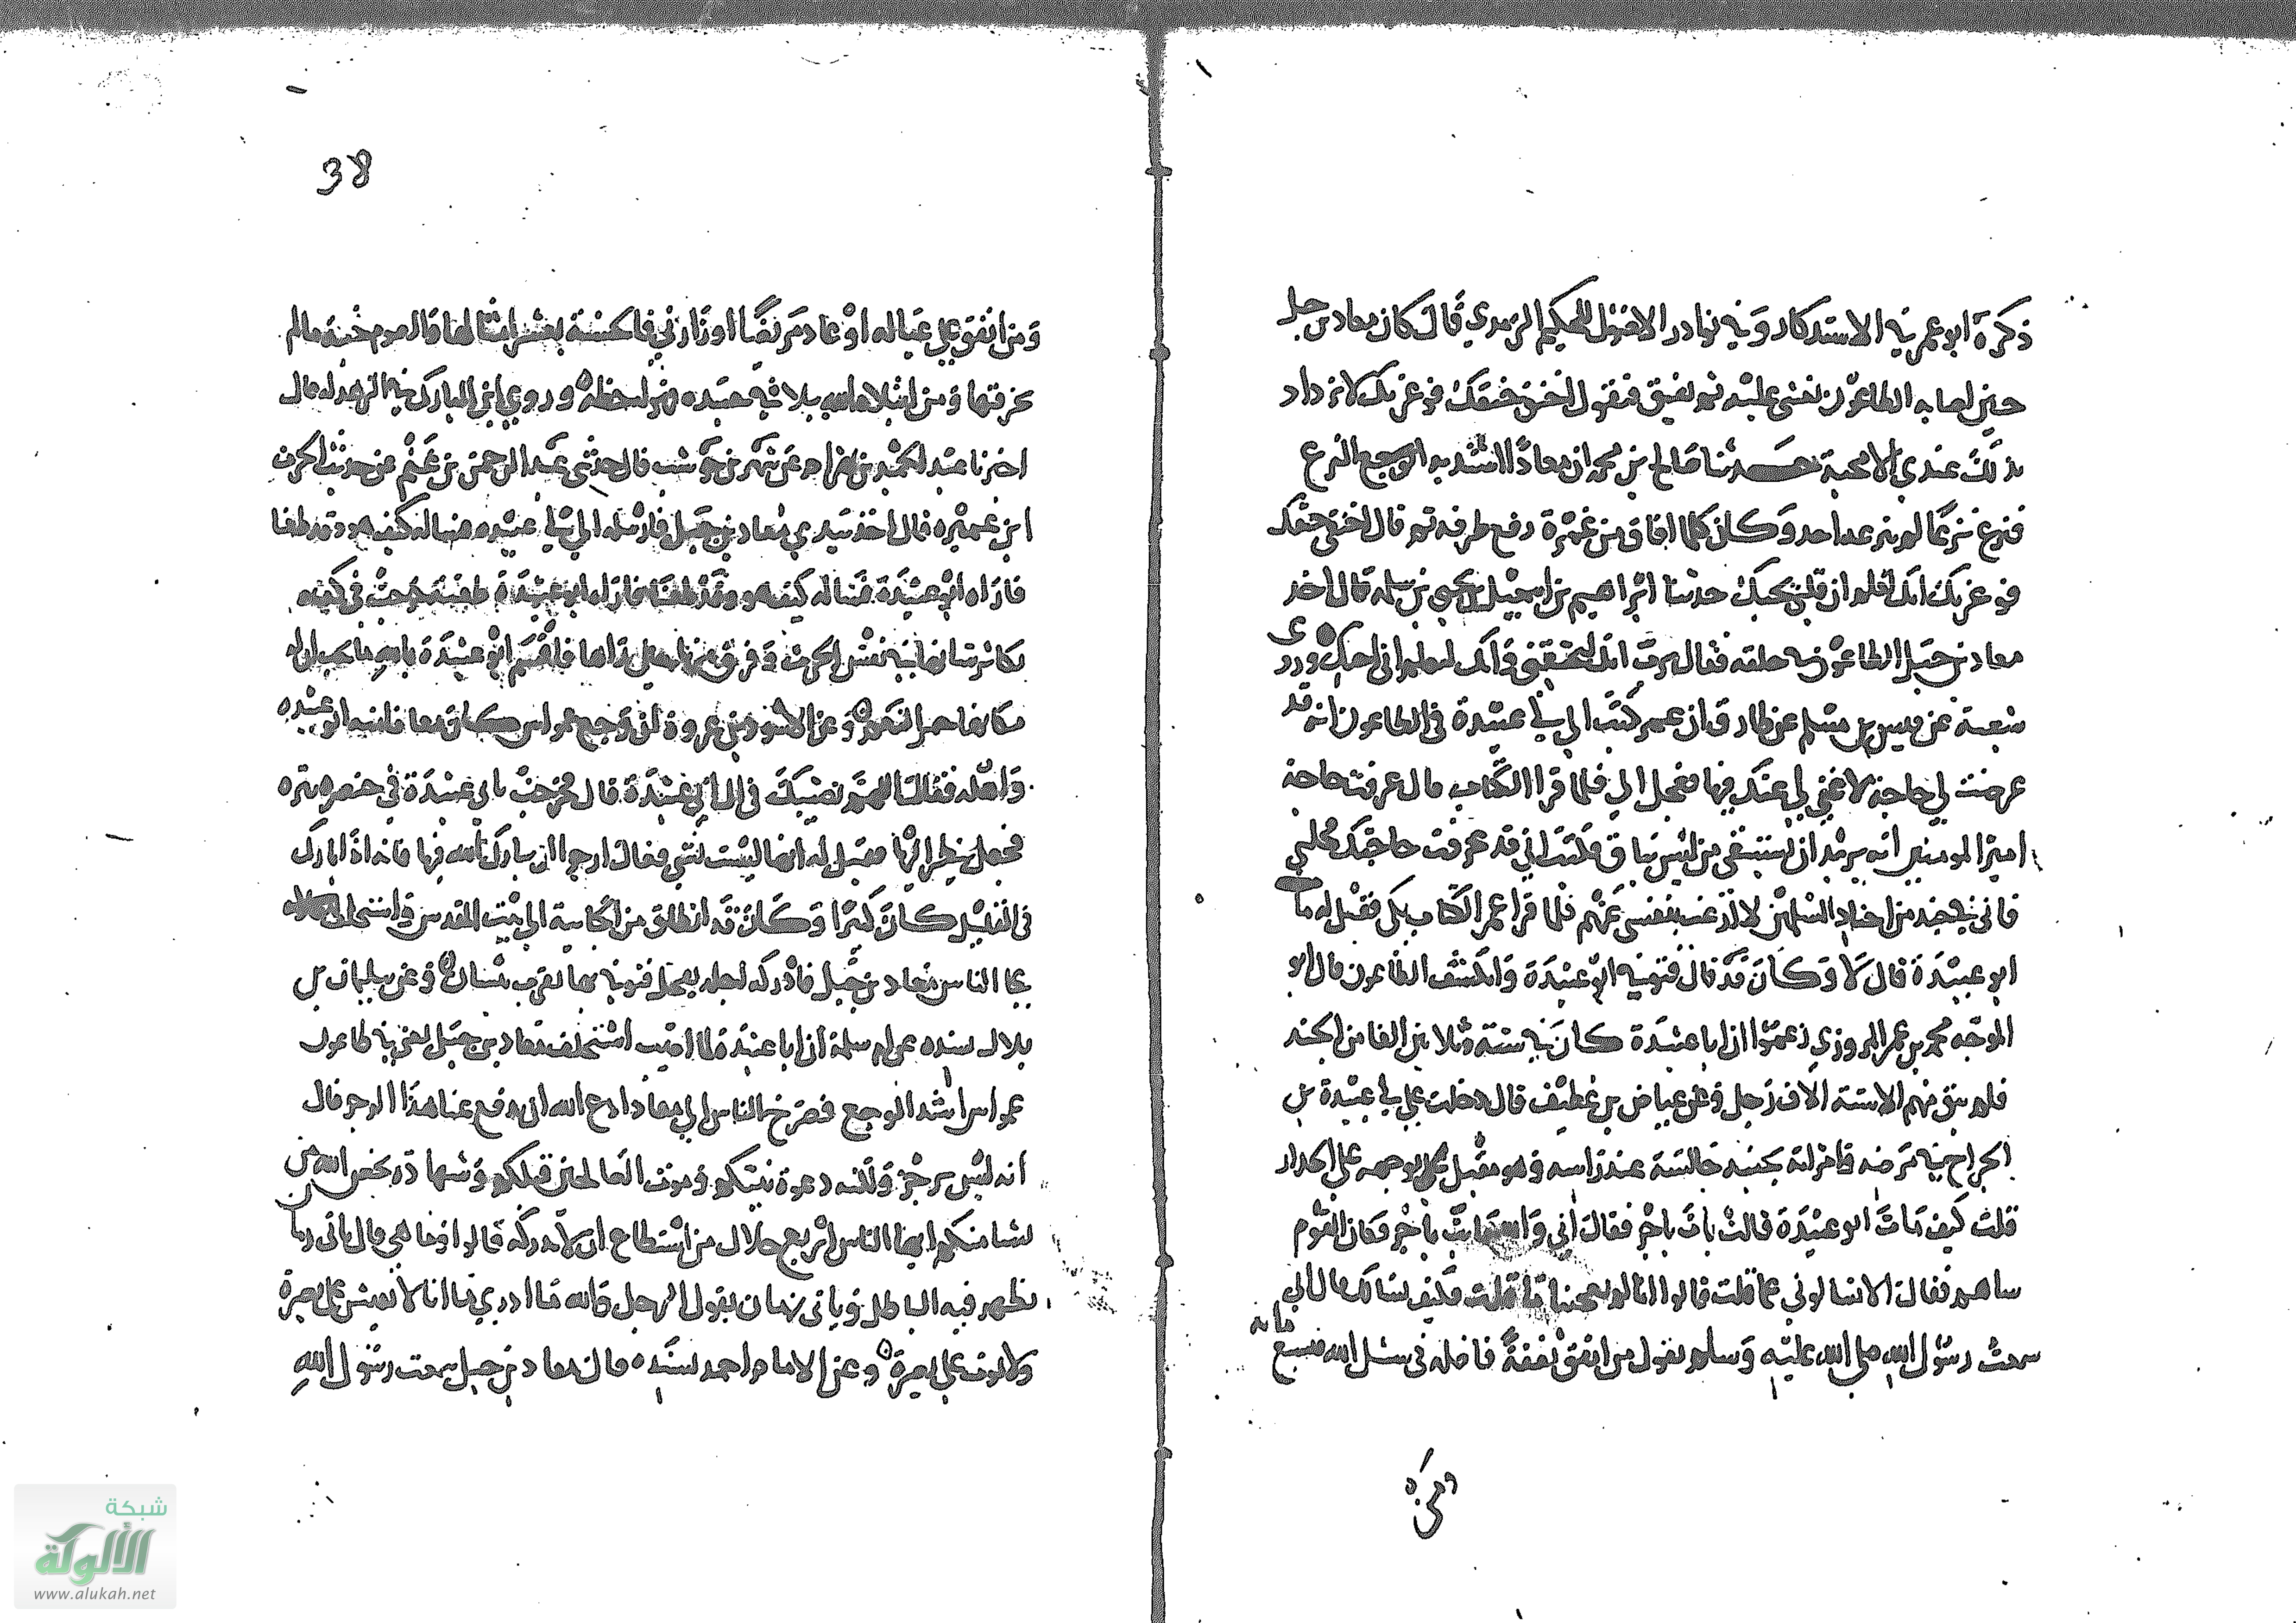 ذكرة ابو عمر في الاستدكار وفي نوادر الاصول للحكيم الترمدي قال كان معاد بن جبل
حين اصابه الطاعون يغشى عليه ثم يفيق فيقول اخنق خنقك فوعزتك لا تزداد
بذلك عندي الا محبة حدثنا صالح بن محمد ان معادًا اشتد به الوجع النزع
فنزع نزعًا لم ينزعه احد وكان كلما افاق من غمرة رفع طرفه ثم قال اخنق خنقك
فوعزتك انك لتعلم ان قلبي يحبك حدثنا ابراهيم بن اسمعيل بن يحيى بن سلمة قال اخد
معاد بن جبل الطاعون في حلقه فقال يرب انك لتخنقني وانك لتعلم اني احبك وروى
شعبة عن قيس بن مسلم عن طارق ان عمر كتب الى ابي عبيدة في الطاعون انه قد
عرضت لي حاجة لا غنى لي عنك فيها فعجل الي فلما قرا الكتاب قال عرفت حاجة
امير المومنين انه يريد ان يستبقي من ليس بباق فكتب اني قد عرفت حاجتك فحللني
فاني في جند من اجناد المسلمين لا ارغب بنفسي عنهم فلما قرا عمر الكتاب بكى فقيل له مات
ابو عبيدة قال لا وكان قد قال فتوفي ابو عبيدة وانكشف الطاعون قال ابو
الموجه محمد بن عمر المروزي زعموا ان ابا عبيدة كان في ستة وثلاثين الفا من الجند
فلم يبق منهم الا ستة الاف رجل وعن عياض بن غطيف قال دخلت على ابي عبيدة بن
الجراح في مرضه وامراته بجنبه جالسة عند راسه وهو مقبل بوجهه على الجدار
قلت كيف بات ابو عبيدة قالت بات باجر فقال اني والله ما بت باجر فكان القوم
ساهم فقال الا تسالوني عما قلت قالوا انا لم يعجبنا ما قلت فكيف نسالك قال اني
سمعت رسول الله صلى الله عليه وسلم يقول من انفق نفقة فاضله في سبيل الله فبسبع مايه
ومن
38
ومن انفق على عياله او عاد مريضًا او زار فالحسنة بعشر امثالها والصوم جنة مالم
يخرقها ومن ابتلاه الله ببلا في جسده فهو له حطة وروى ابن المبارك في الزهد له قال
اخبرنا عبد الحميد بن بهرام عن شهر بن حوشب قال حدثني عبد الرحمن بن غنم عن حديث الحرث
ابن عميره قال اخذ بيدي معاد بن جبل فارسله الى ابي عبيده فساله كيف هو وقد طعنا
فاراه ابو عبيدة طعنة خرجت في كفه
تكاثر شانها في نفس الحرث وفرق منها حين راها فاقسم ابو عبيدة بالله ما يحب ان له
مكانها حمر النعم وعن الاسود عن عروة ان وجع عمواس كان معافا منه ابو عبيده
واهله فقال اللهم نصيبك في ال ابي عبيدة قال فخرجت بابي عبيدة في خنصره بثره
فجعل ينظر اليها فقيل له انها ليست بشي فقال ارجوا ان يبارك الله فيها فانه اذا بارك
في القليل كان كبيرًا وكان قد انطلق من الجابية الى بيت المقدس فاستخلف
على الناس معاد بن جبل فادركه اجله بفحل فتوفي بها بقرب بيسان وعن سليمان بن
بلال بسنده عن ام سلمة ان ابا عبيدة لما اصيب استخلف معاد بن جبل يعني في طاعون
عمواس اشتد الوجع فصرخ الناس الى معاد ادع الله ان يدفع عنا هذا الرجز قال
انه ليس برجز ولكنه دعوة نبيكم وموت الصالحين قبلكم وشهادة يخص الله من
يشا منكم ايها الناس اربع خلال من استطاع ان لا يدركه قالوا وما هي قال ياتي زمان
يظهر فيه الباطل وياتي زمان يقول الرجل والله ما ادري ما انا لا يعيش على بصيرة
ولا يموت على بصيرة وعن الامام احمد بسنده قال معاد بن جبل سمعت رسول الله
شبكة
الألوكة
www.alukah.net